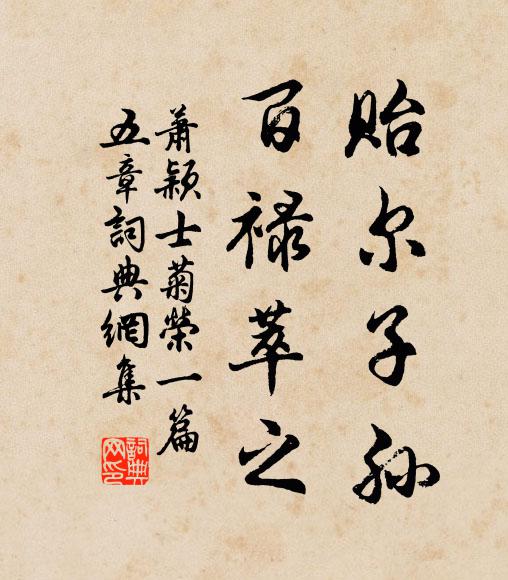 贻尔子孙
百禄萃之
萧颖士菊荣一篇
五章詞典網集
詞典
网印